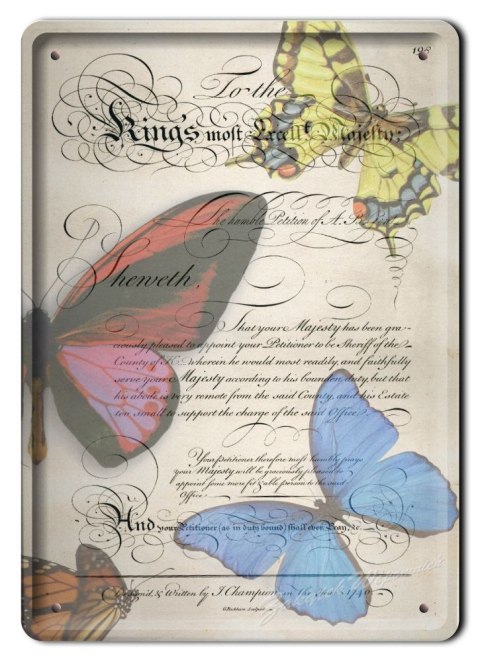 198
To the
Kings most Excell.t Majesty;
The humble Petition of A. B.
Sheweth,
That your Majesty has been gra-
ciously pleased to appoint your Petitioner to be Sheriff of the
County of B. wherein he would most readily, and faithfully
serve your Majesty according to his bounden duty, but that
his abode is very remote from the said County, and his Estate
too small to support the charge of the said Office.
Your Petitioner therefore most humbly prays
your Majesty will be graciously pleased to
appoint some more fit & able person to the said
Office.
And your Petitioner (as in duty bound) shall ever Pray, &c.
& Written by J. Champion in the Year 1740
G. Bickham Sculpsit